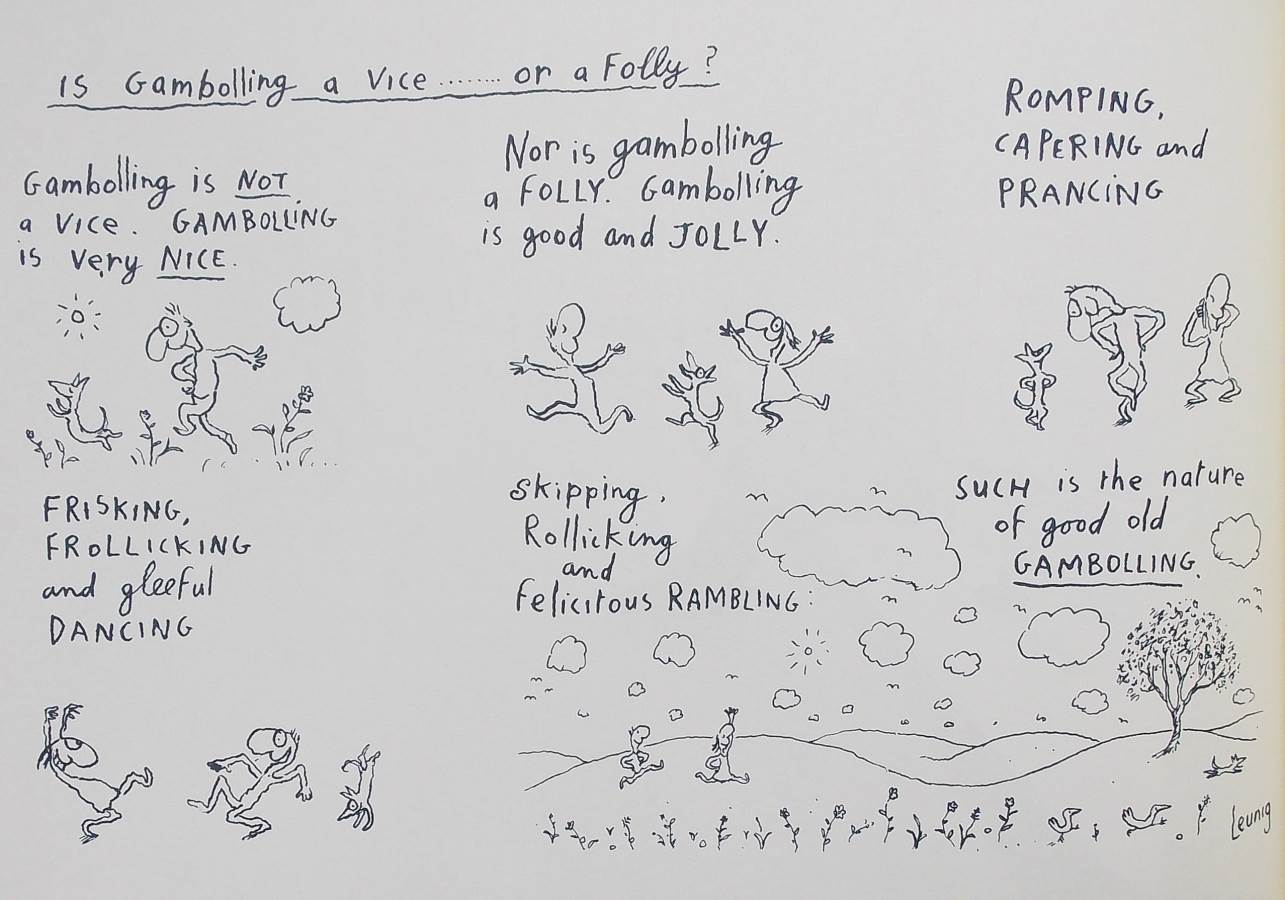 IS Gambolling a Vice ........ or a Folly?
Gambolling is NOT
a Vice. GAMBOLLING
is very NICE.
Nor is gambolling
a FOLLY. Gambolling
is good and JOLLY.
ROMPING,
CAPERING and
PRANCING
FRISKING,
FROLLICKING
and gleeful
DANCING
Skipping,
Rollicking
and
Felicitous RAMBLING:
SUCH is the nature
of good old
GAMBOLLING.
Leunig